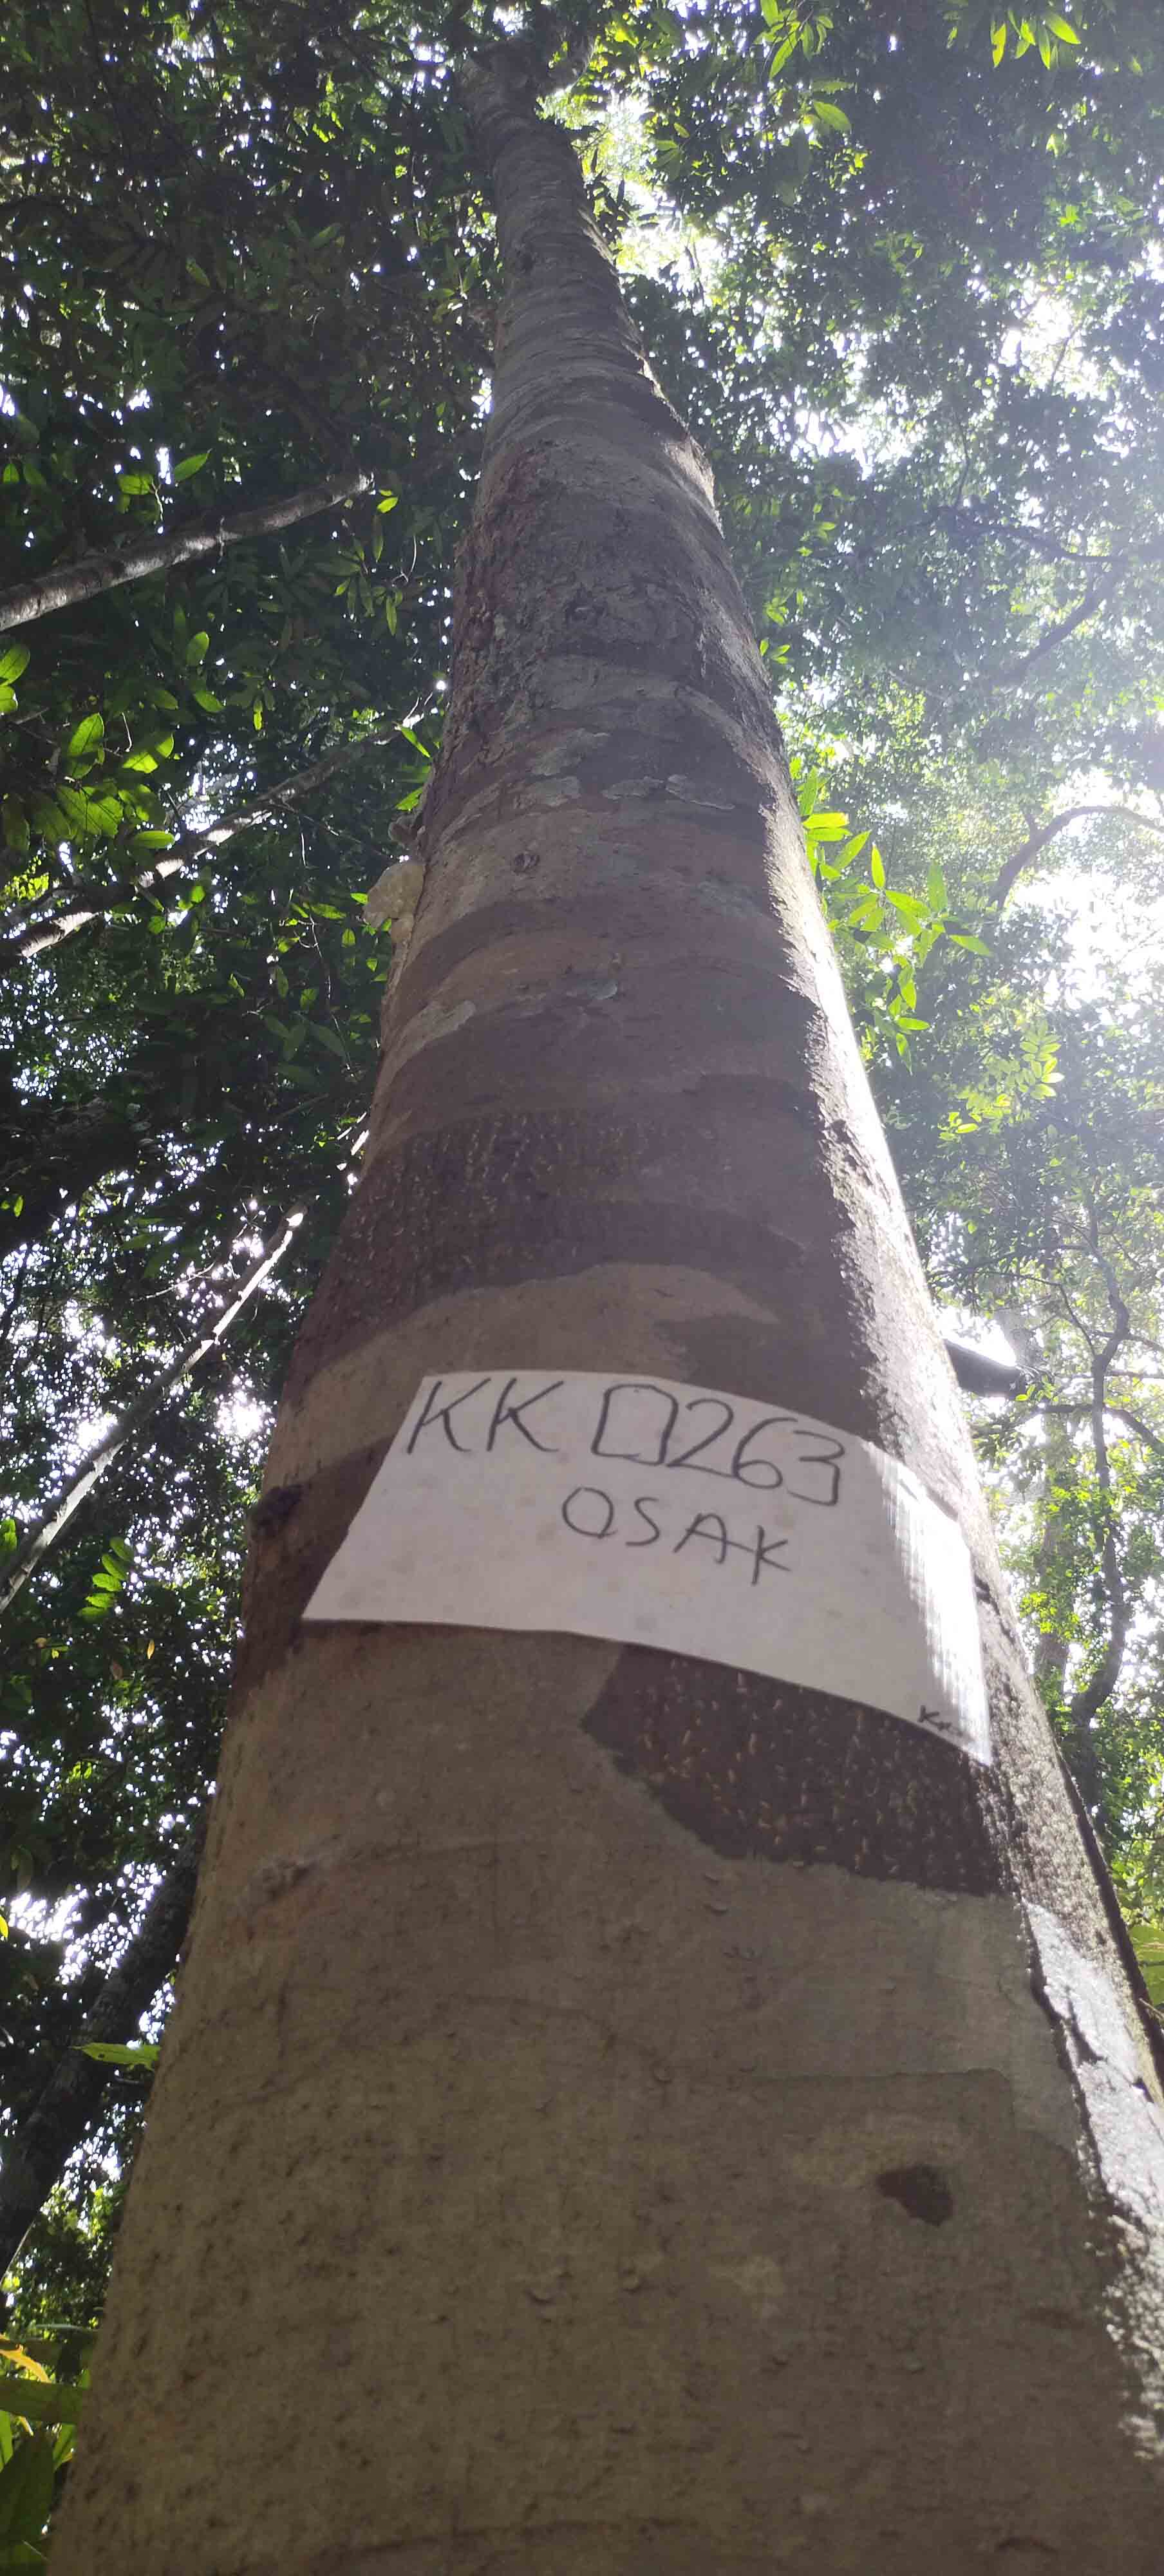 KK 0263
OSAK